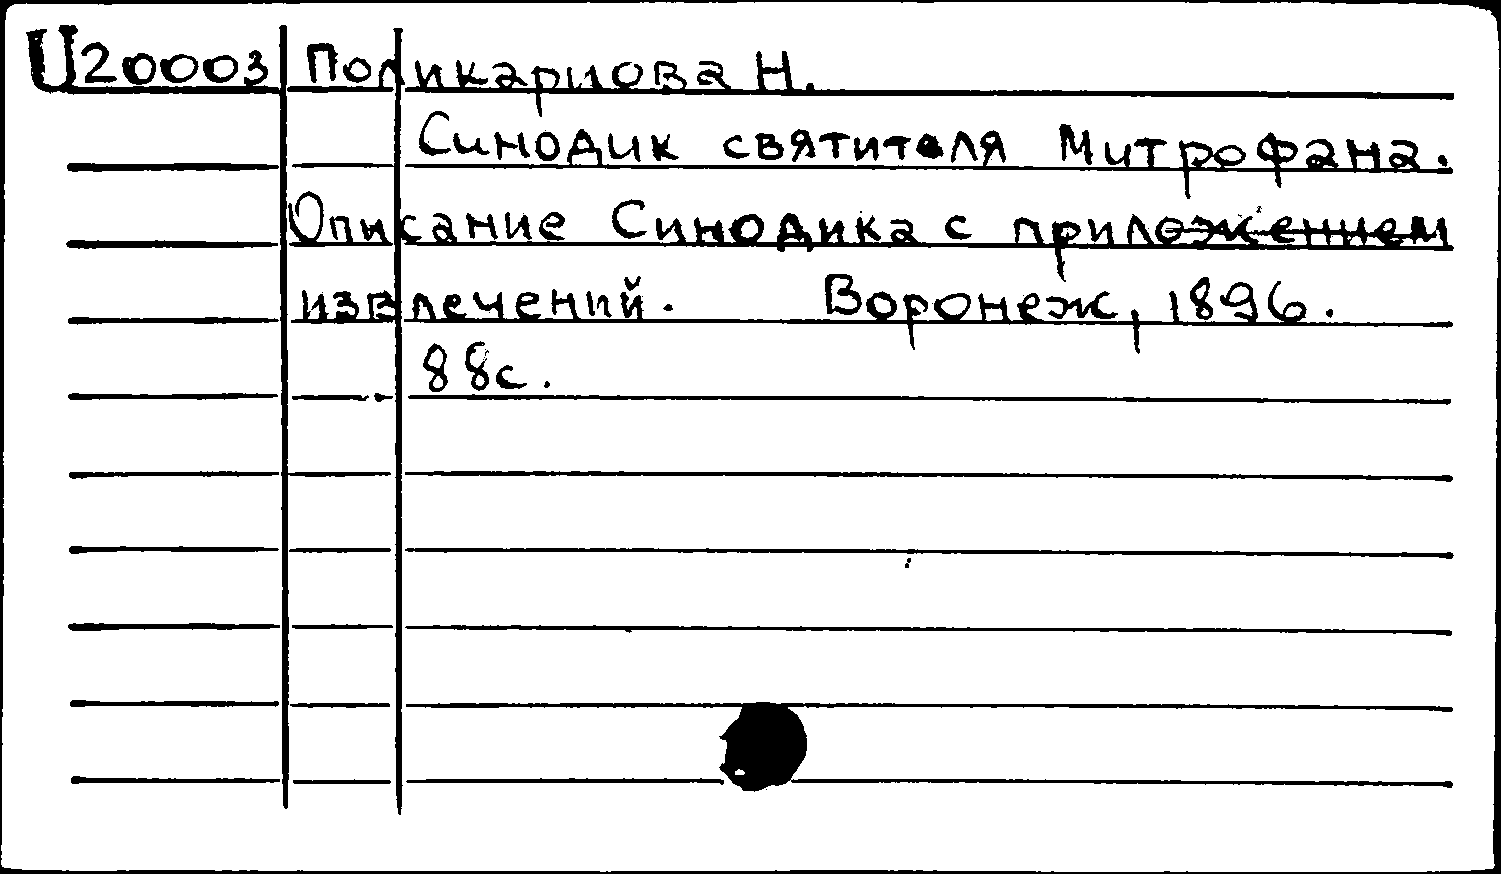 U20003 Поликарпова Н.
Синодик святителя Митрофана.
Описание Синодика с приложением
извлечений. Воронеж, 1896.
88с.